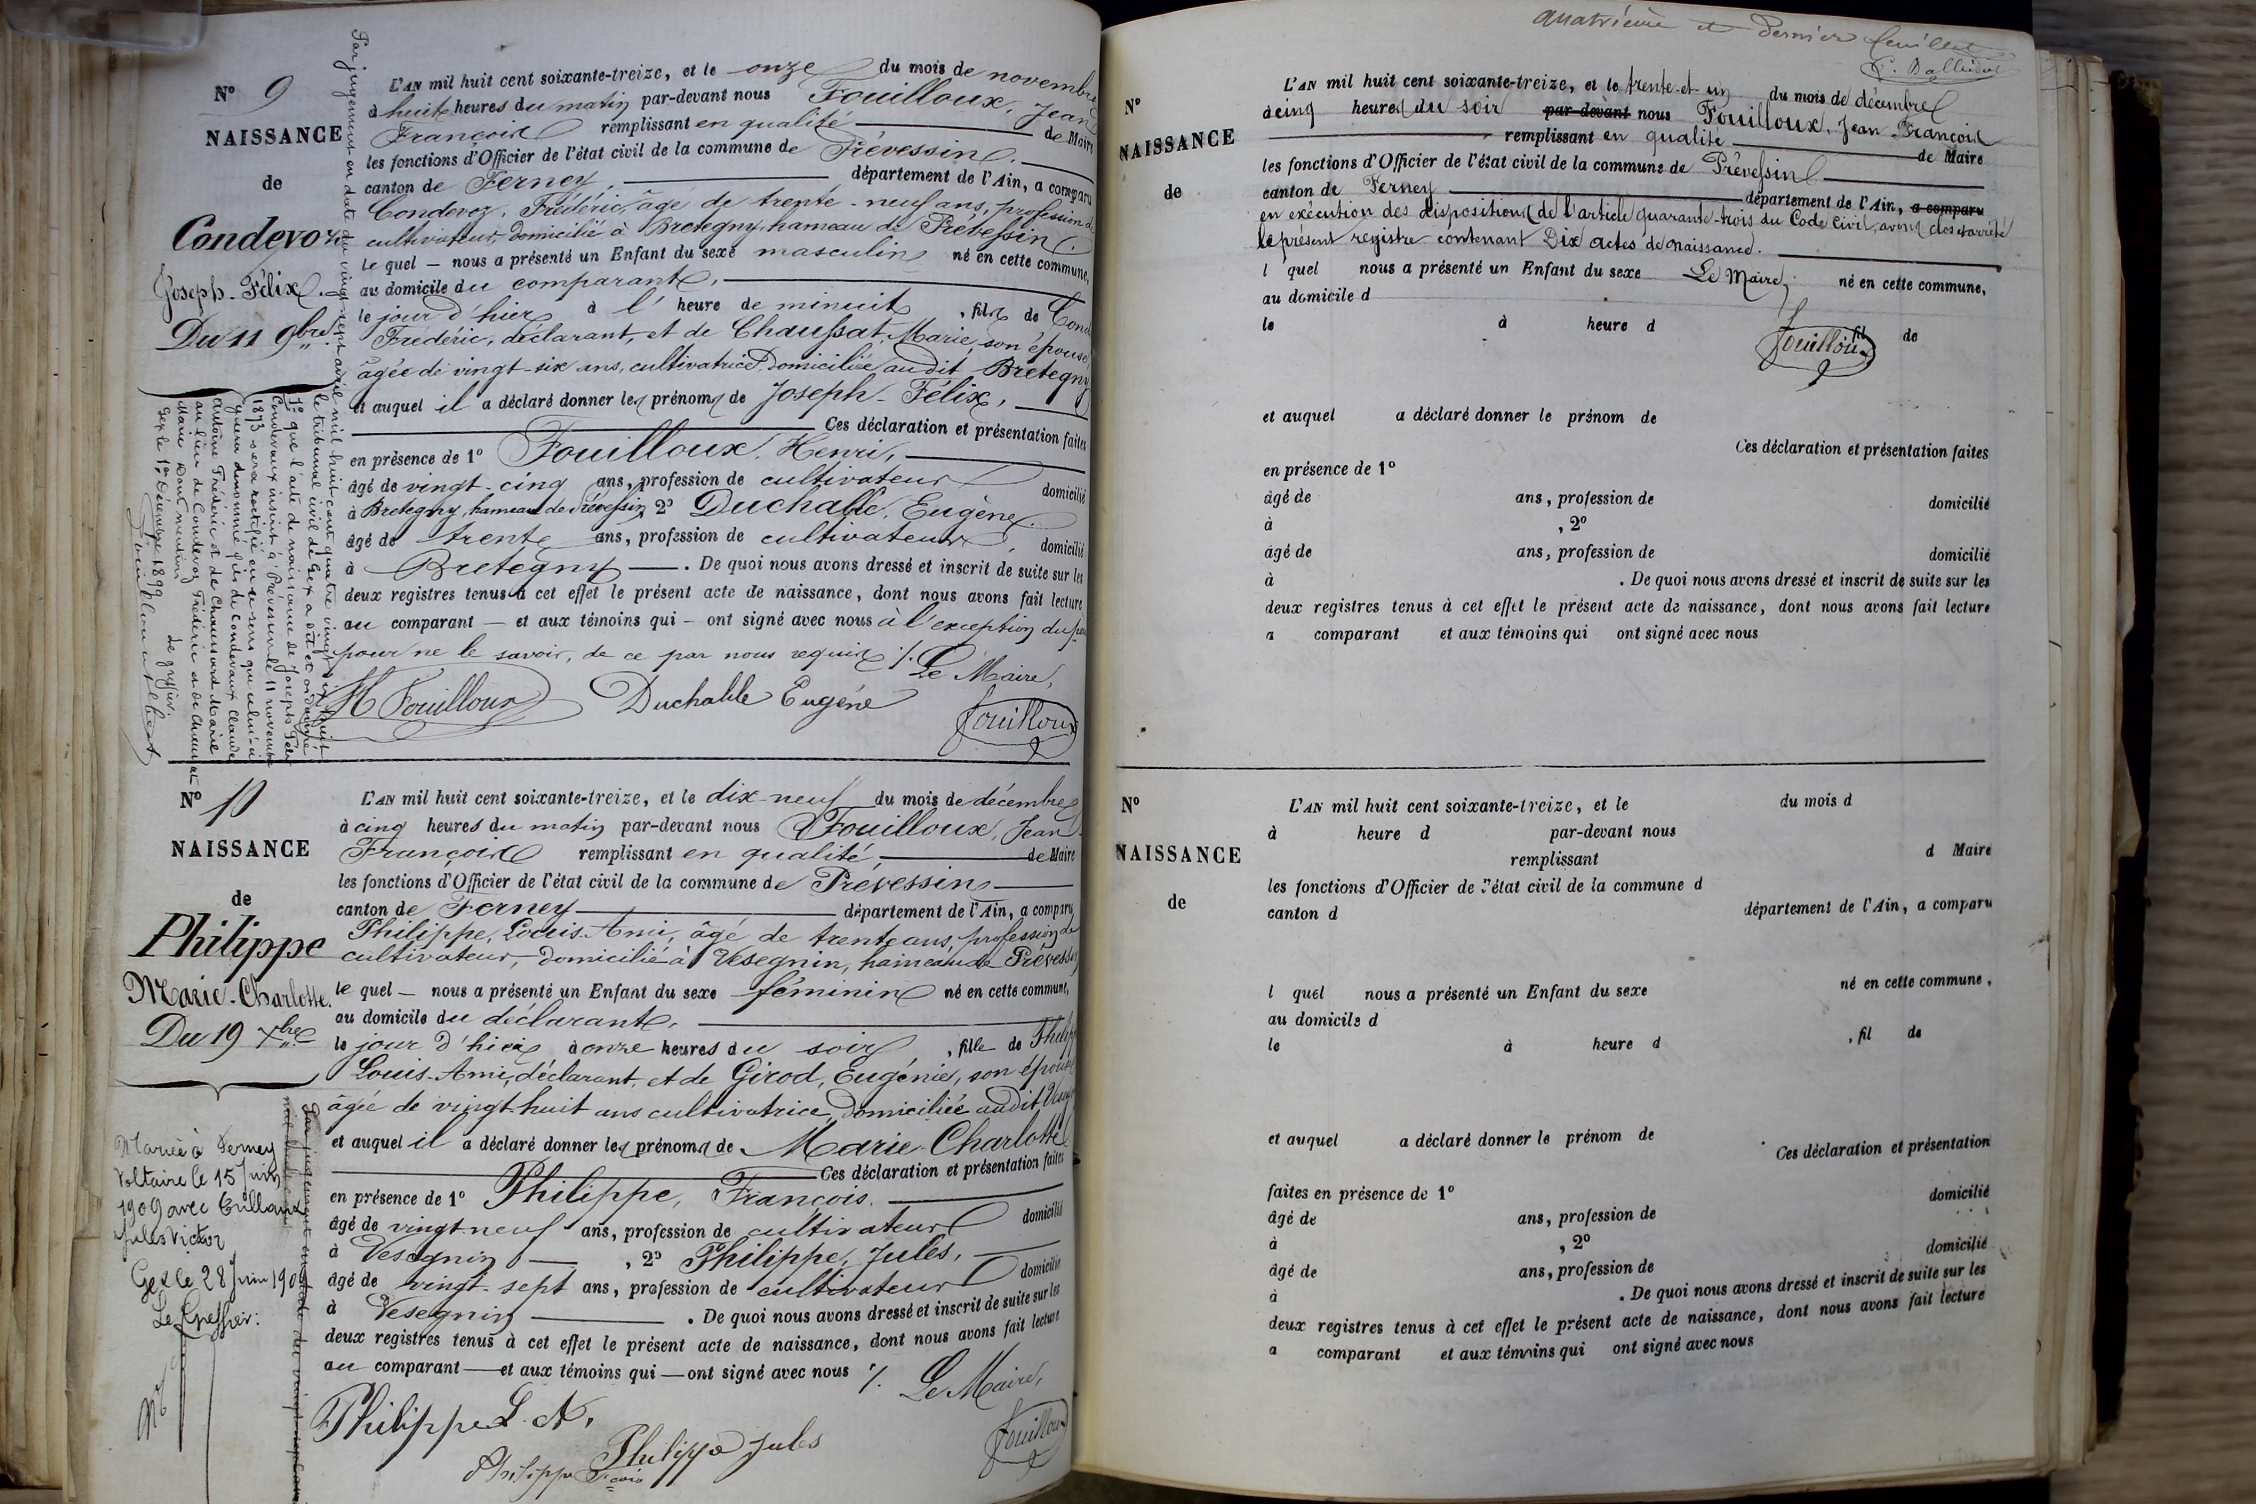 N° 9
NAISSANCE
de
Condevoz
Joseph-Félix.
Du 11 9bre
L'AN mil huit cent soixante-treize, et le onze du mois de novembre
à huit heures du matin par-devant nous Fouilloux, Jean
François remplissant en qualité de Maire
les fonctions d'Officier de l'état civil de la commune de Prévessin,
canton de Ferney, département de l'Ain, a comparu
Condevoz, Frédéric, âgé de trente-neuf ans, profession de
cultivateur, domicilié à Bretegny, hameau de Prévessin,
le quel — nous a présenté un Enfant du sexe masculin né en cette commune,
au domicile du comparant,
le jour d'hier à l' heure de minuit, fils de
Frédéric, déclarant, et de Chaussat, Marie, son épouse
âgée de vingt-six ans, cultivatrice, domiciliée audit Bretegny
et auquel il a déclaré donner les prénoms de Joseph-Félix,
Ces déclaration et présentation faites
en présence de 1° Fouilloux, Henri,
âgé de vingt-cinq ans, profession de cultivateur domicilié
à Bretegny, hameau de Prévessin, 2° Duchable, Eugène,
âgé de trente ans, profession de cultivateur, domicilié
à Bretegny —. De quoi nous avons dressé et inscrit de suite sur les
deux registres tenus à cet effet le présent acte de naissance, dont nous avons fait lecture
au comparant — et aux témoins qui — ont signé avec nous à l'exception du
pour ne le savoir, de ce par nous requis ./. Le Maire,
H Fouilloux Duchable Eugène Fouilloux
Par jugement en date du vingt-sept avril mil huit cent quatre vingt dix huit
le tribunal civil de Gex a dit et ordonné
1° que l'acte de naissance de Joseph Félix
Condevaux inscrit à Prévessin le 11 novembre
1873 sera rectifié en ce sens que celui-ci
y sera dénommé fils de Condevaux Claude
Antoine Frédéric et de Chaussard Marie
au lieu de Condevoz Frédéric et de Chaussat
Marie Dont mention
Gex le 1er Décembre 1899
Le greffier
N° 10
NAISSANCE
de
Philippe
Marie-Charlotte.
Du 19 Xbre
L'AN mil huit cent soixante-treize, et le dix-neuf du mois de décembre
à cinq heures du matin par-devant nous Fouilloux, Jean
François remplissant en qualité, de Maire
les fonctions d'Officier de l'état civil de la commune de Prévessin
canton de Ferney département de l'Ain, a comparu
Philippe, Louis-Ami, âgé de trente ans, profession de
cultivateur, domicilié à Vesegnin, hameau de Prévessin
le quel — nous a présenté un Enfant du sexe féminin né en cette commune,
au domicile du déclarant,
le jour d'hier à onze heures du soir, fille de Philippe
Louis-Ami, déclarant, et de Girod, Eugénie, son épouse
âgée de vingt-huit ans cultivatrice, domiciliée audit
et auquel il a déclaré donner les prénoms de Marie-Charlotte
Ces déclaration et présentation faites
en présence de 1° Philippe, François.
âgé de vingt-neuf ans, profession de cultivateur domicilié
à Vesegnin —, 2° Philippe, Jules,
âgé de vingt-sept ans, profession de cultivateur domicilié
à Vesegnin . De quoi nous avons dressé et inscrit de suite sur les
deux registres tenus à cet effet le présent acte de naissance, dont nous avons fait lecture
au comparant — et aux témoins qui — ont signé avec nous ./. Le Maire,
Philippe L. A.
Philippe Jules
Philippe Fçois
Fouilloux
Mariée à Ferney
Voltaire le 15 Juin
1909 avec
Jules Victor
Gex le 28 Juin 1909
Le Greffier:
Quatrième et dernier feuillet
N°
NAISSANCE
de
L'AN mil huit cent soixante-treize, et le trente-et-un du mois de décembre
à cinq heures du soir par-devant nous Fouilloux, Jean-François
remplissant en qualité de Maire
les fonctions d'Officier de l'état civil de la commune de Prévessin
canton de Ferney département de l'Ain, a comparu
en exécution des dispositions de l'article quarante-trois du Code Civil, avons clos et arrêté
le présent registre contenant Dix actes de naissance.
l quel nous a présenté un Enfant du sexe Le Maire, né en cette commune,
au domicile d
le à heure d fil de
Fouilloux
et auquel a déclaré donner le prénom de
Ces déclaration et présentation faites
en présence de 1°
âgé de ans, profession de domicilié
à , 2°
âgé de ans, profession de domicilié
à . De quoi nous avons dressé et inscrit de suite sur les
deux registres tenus à cet effet le présent acte de naissance, dont nous avons fait lecture
a comparant et aux témoins qui ont signé avec nous
N°
NAISSANCE
de
L'AN mil huit cent soixante-treize, et le du mois d
à heure d par-devant nous
remplissant d Maire
les fonctions d'Officier de l'état civil de la commune d
canton d département de l'Ain, a comparu
l quel nous a présenté un Enfant du sexe né en cette commune,
au domicile d
le à heure d , fil de
et auquel a déclaré donner le prénom de
Ces déclaration et présentation
faites en présence de 1° domicilié
âgé de ans, profession de
à , 2°
âgé de ans, profession de domicilié
à . De quoi nous avons dressé et inscrit de suite sur les
deux registres tenus à cet effet le présent acte de naissance, dont nous avons fait lecture
a comparant et aux témoins qui ont signé avec nous